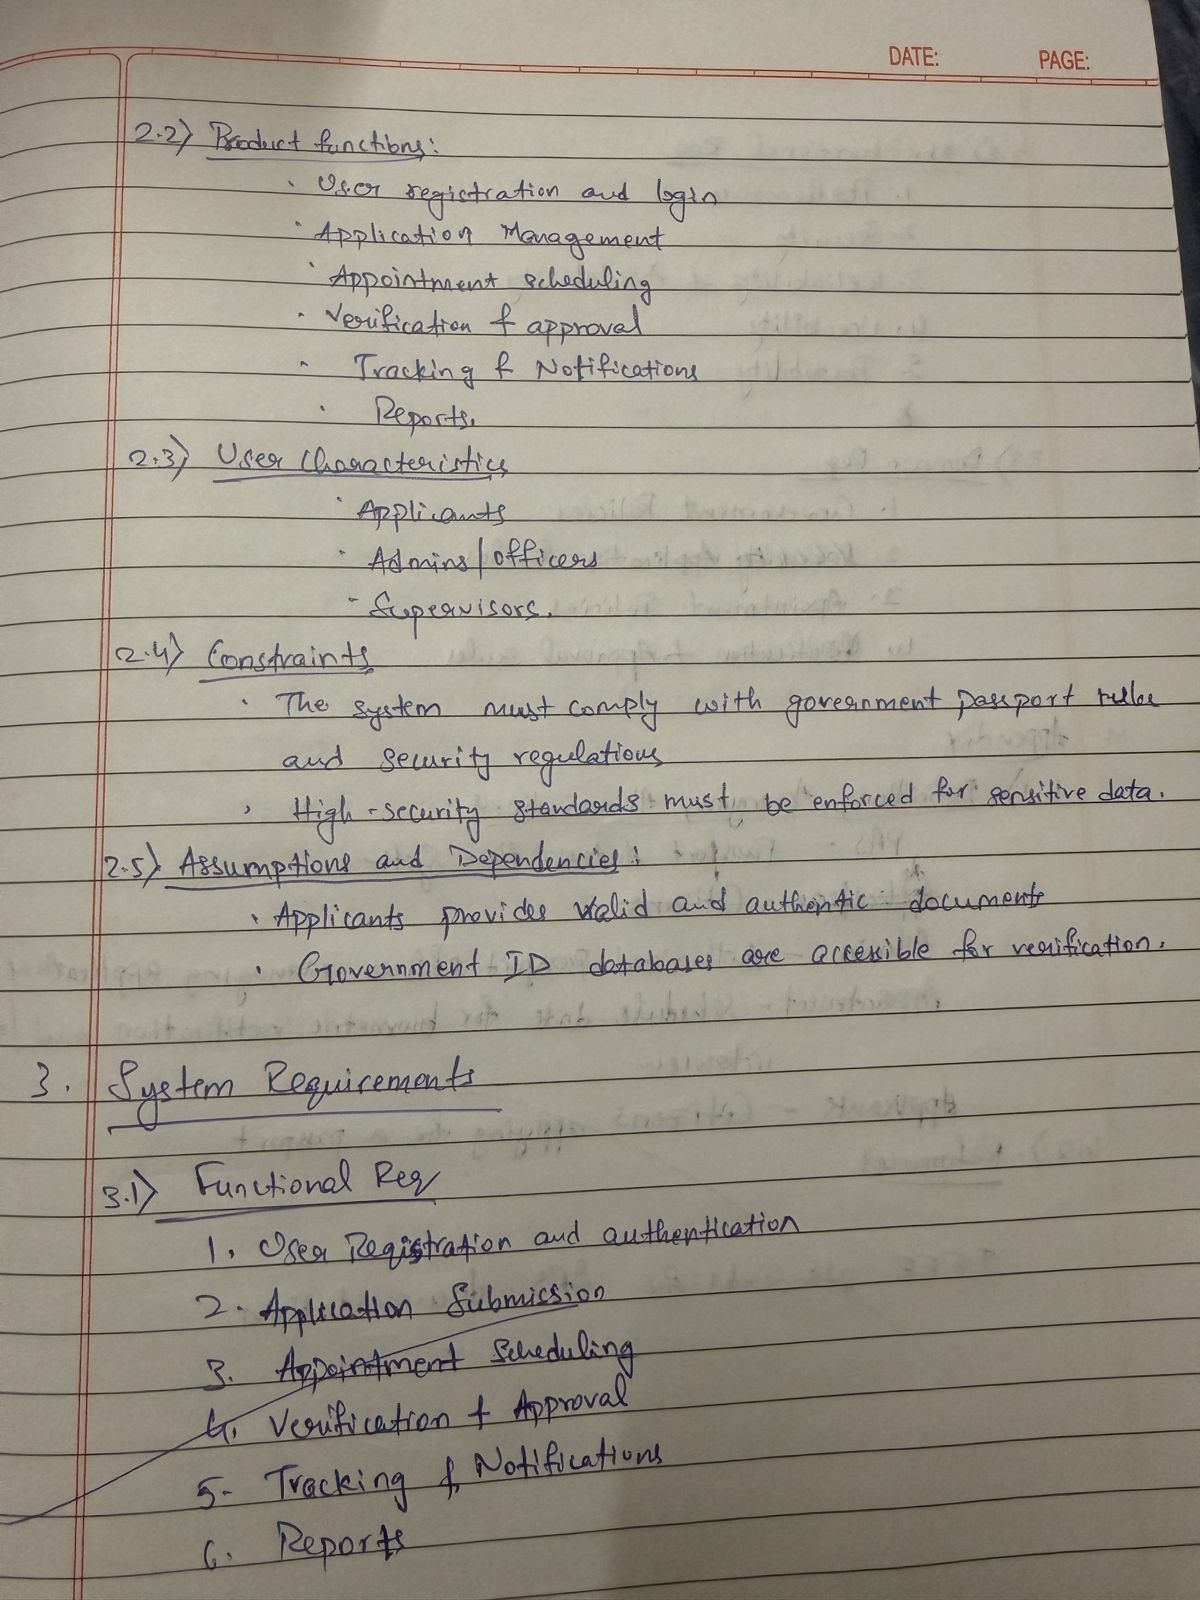 DATE: PAGE:
2.2) Product functions:
· User registration and login
· Application Management
· Appointment scheduling
· Verification & approval
· Tracking & Notifications
· Reports.
2.3) User Characteristics
· Applicants
· Admins/officers
- Supervisors.
2.4) Constraints
· The system must comply with government passport rules
and security regulations
· High-security standards must be enforced for sensitive data.
2.5) Assumptions and Dependencies:
· Applicants provides valid and authentic documents
· Government ID databases are accessible for verification.
3. System Requirements
3.1) Functional Req
1. User Registration and authentication
2. Application Submission
3. Appointment Scheduling
4. Verification & Approval
5- Tracking & Notifications
6. Reports